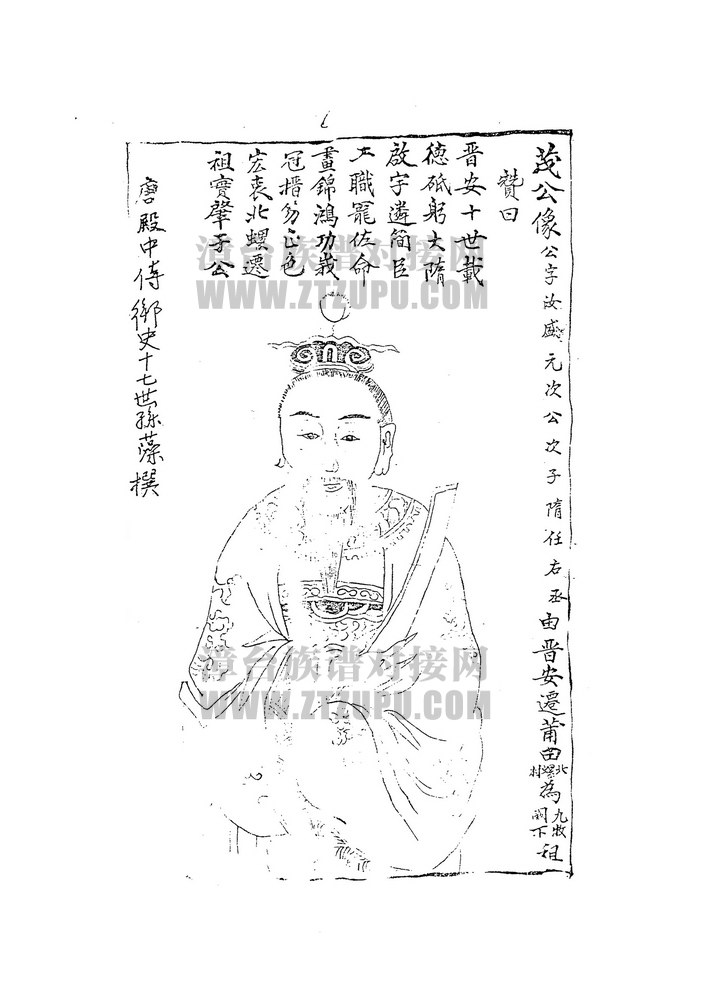 茂公像 公字汝盛元次公次子隋任右丞由晋安遷莆田北螺村為九牧闕下祖
贊曰
晋安十世載
德砥躬大隋
啟字遴簡臣
工職寵佐命
晝錦鴻功裁
冠搢笏正色
宏衷北螺遷
祖實肇于公
唐殿中侍御史十七世孫藻撰
漳台族谱对接网
WWW.ZTZUPU.COM
漳台族谱对接网
WWW.ZTZUPU.COM